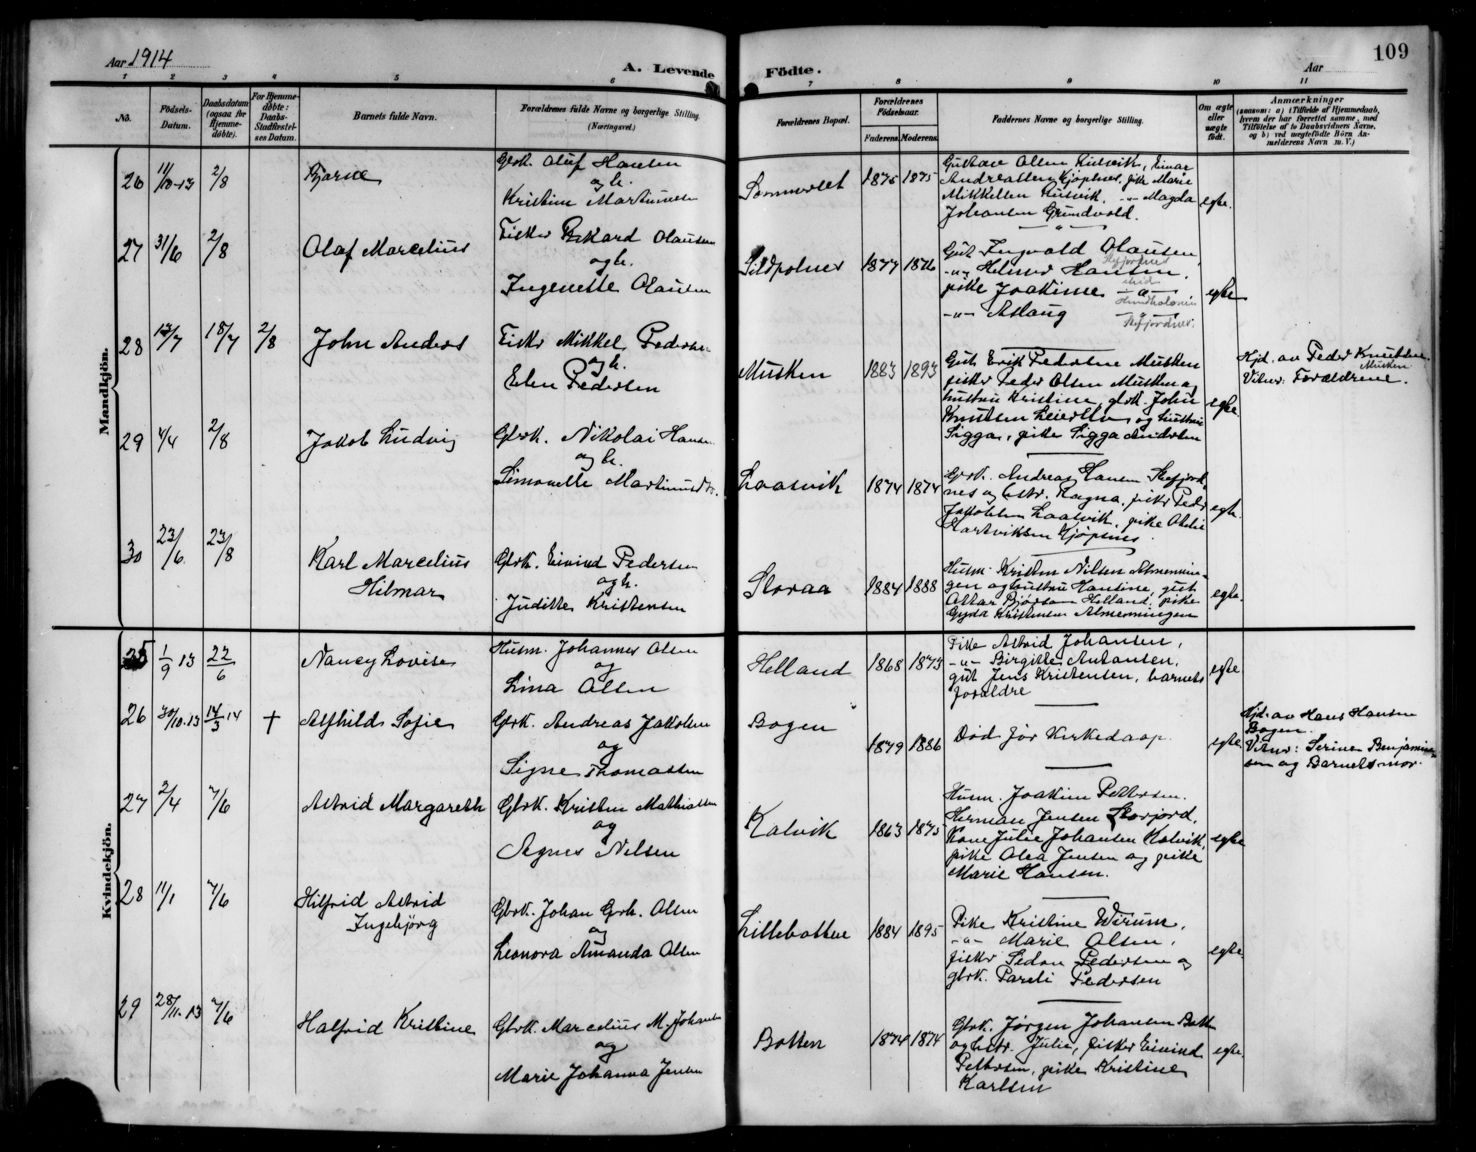 109
Aar 1914
A. Levende Födte.
Aar
1 2 3 4 5 6 7 8 9 10 11
No.
Födsels-Datum.
Daabsdatum (ogsaa for Hjemme-döbte).
For Hjemme-döbte: Daabs-Stadfæstel-ses Datum.
Barnets fulde Navn.
Forældrenes fulde Navne og borgerlige Stilling. (Næringsvei.)
Forældrenes Bopæl.
Forældrenes Födselsaar.
Faderens. Moderens.
Faddernes Navne og borgerlige Stilling.
Om ægte eller uægte födt.
Anmærkninger
Mandkjön.
26 11/10-13 2/8 Bjarne
Gbrk. Oluf Hansen
og h.
Kristine Martinussen
Sommerset 1875 1875
Gustav Olsen Rusvik, Einar
Andreassen Kjöpsnes, pike Marie
Mikkelsen Rusvik, -"- Magda
Johansen Grundvold.
egte.
27 31/6 2/8 Olaf Marcelius
Fisker Rikard Olausen
og h.
Ingenette Olausen
Sildpolnes 1877 1876
Gut Ingvald Olausen,
-"- Helmer Hansen,
pike Joakime -"-
-"- Aslaug -"-
Skjordnes.
egte
28 12/7 18/7 2/8 John Anders
Fisker Mikkel Pedersen
og h.
Elen Pedersen
Musken 1883 1893
Gut Erik Pedersen Musken
fisker Peder Olsen Musken og
hustru Kristine, gbrk. John
Knutsen og hustru
Sigga, pike Sigga Andersen
egte
Hjd. av Peder Knutsen
Musken
Vitner: Forældrene.
29 4/4 2/8 Jakob Ludvig
Gbrk. Nikolai Hansen
og h.
Simonette Martinusdtr.
Laasvik 1874 1874
Gbrk. Andreas Hansen Skefjord-
nes og hstr. Ragna, fisker Peder
Jakobsen Laasvik, pike
Hartviksen Kjöpsnes.
egte.
30 23/6 23/8 Karl Marcelius
Hilmar
Gbrk. Eivind Pedersen
og h.
Juditte Kristensen
Storaa 1884 1888
Husm. Kristen Nilsen Almennin-
gen og hustru Hansine, gut
Ottar Björsom Helland, pike
Gyda Kristensen Almenningen
egte.
Kvindekjön.
25 1/9 13 22/6 Nancy Lovise
Husm. Johannes Olsen
og
Lina Olsen
Helland 1868 1873
Pike Astrid Johansen,
-"- Birgitte Antonsen,
gut Jens Kristensen, barnets
foreldre
egte
26 30/10-13 14/3 14 † Alfhild Sofie
Gbrk. Andreas Jakobsen
og
Signe Thomassen
Bogen 1879 1886
Död för Kirkedaap.
egte
Hjd. av Hans Hansen
Bogen.
Vitner: Serine Benjamin-
sen og Barnets mor.
27 2/4 7/6 Astrid Margareth
Gbrk. Kristen Mathiassen
og
Agnes Nilsen
Kalvik 1863 1875
Husm. Joakim Pettersen.
Herman Jensen Storjord,
Kone Julie Johansen Kalvik,
pike Olea Jensen og pike
Marie Hansen.
egte
28 11/1 7/6 Hilfrid Astrid
Ingebjörg
Gbrk. Johan Grh. Olsen
og
Leonora Amanda Olsen
Lillebotten 1884 1895
Pike Kristine Wirum,
-"- Marie Olsen,
fisker Sedon Pedersen og
gbrk. Pareli Pedersen
egte
29 28/11-13 7/6 Halfrid Kristine
Gbrk. Marcelius M. Johansen
og
Marie Johanna Jensen
Botten 1874 1874
Gbrk. Jörgen Johansen Botten
og hstr. Julie, fisker Eivind
Pettersen, pike Kristine
Karlsen
egte.